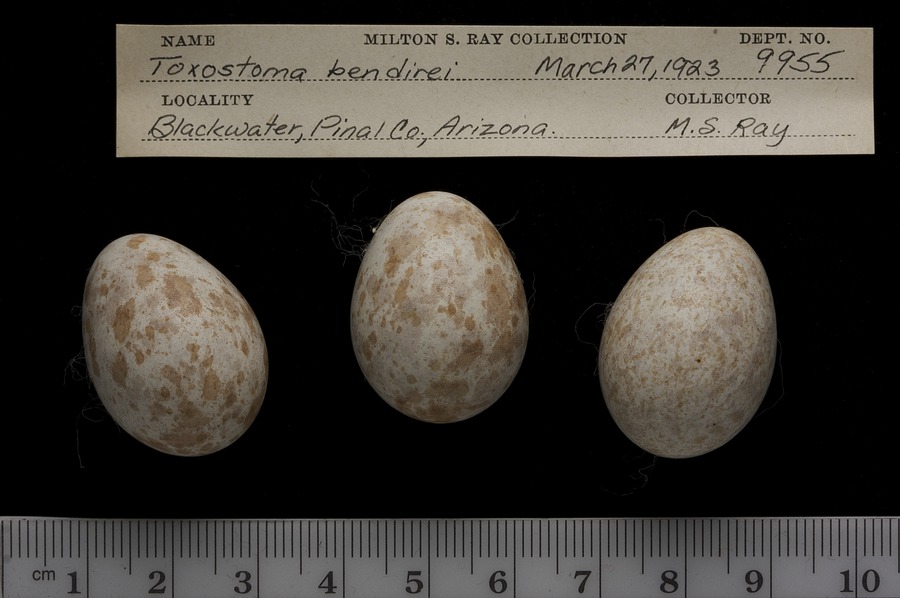 NAME MILTON S. RAY COLLECTION DEPT. NO.
Toxostoma bendirei March 27, 1923 9955
LOCALITY COLLECTOR
Blackwater, Pinal Co., Arizona. M.S. Ray
cm 1 2 3 4 5 6 7 8 9 10